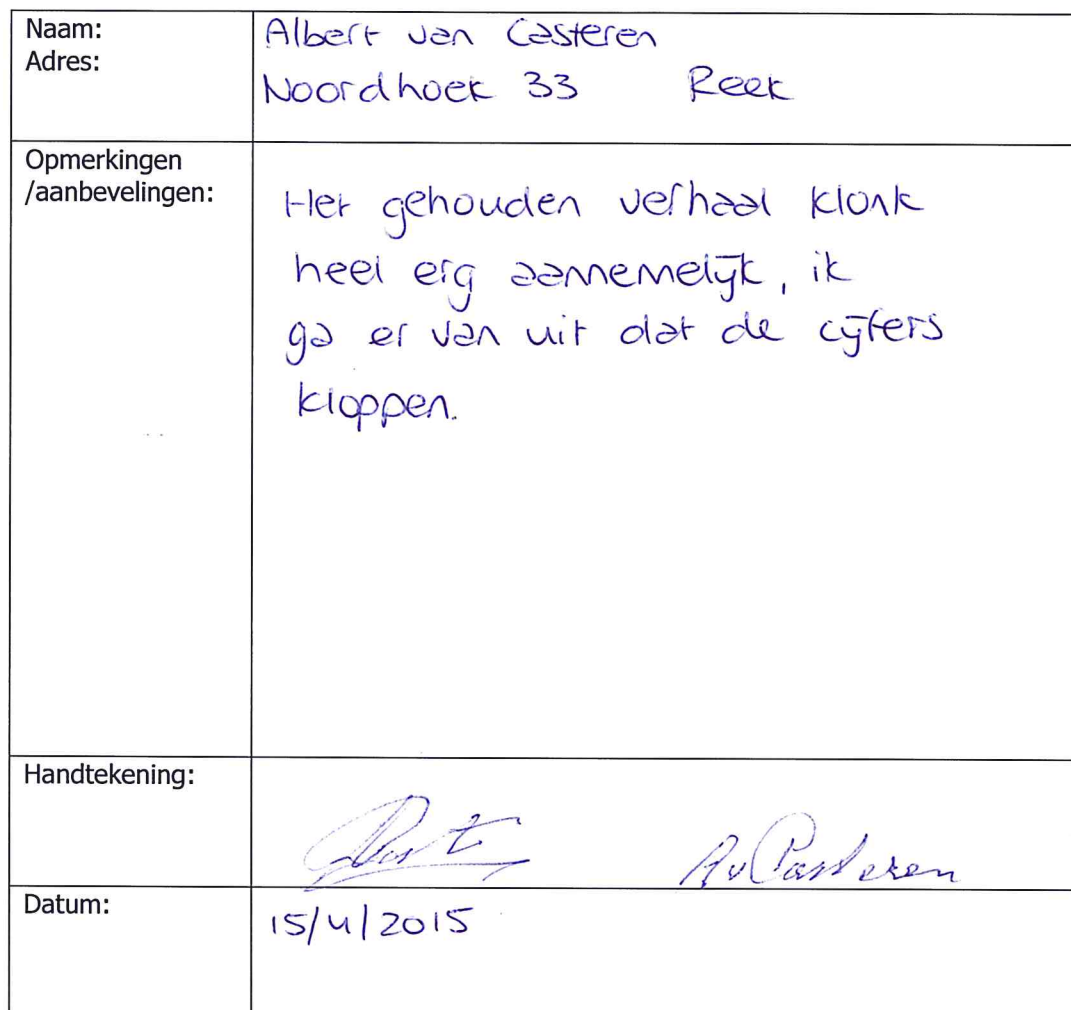 Naam:
Adres:
Albert van Casteren
Noordhoek 33 Reek
Opmerkingen
/aanbevelingen:
Het gehouden verhaal klonk
heel erg aannemelijk, ik
ga er van uit dat de cijfers
kloppen.
Handtekening:
AvCasteren
Datum:
15/4/2015